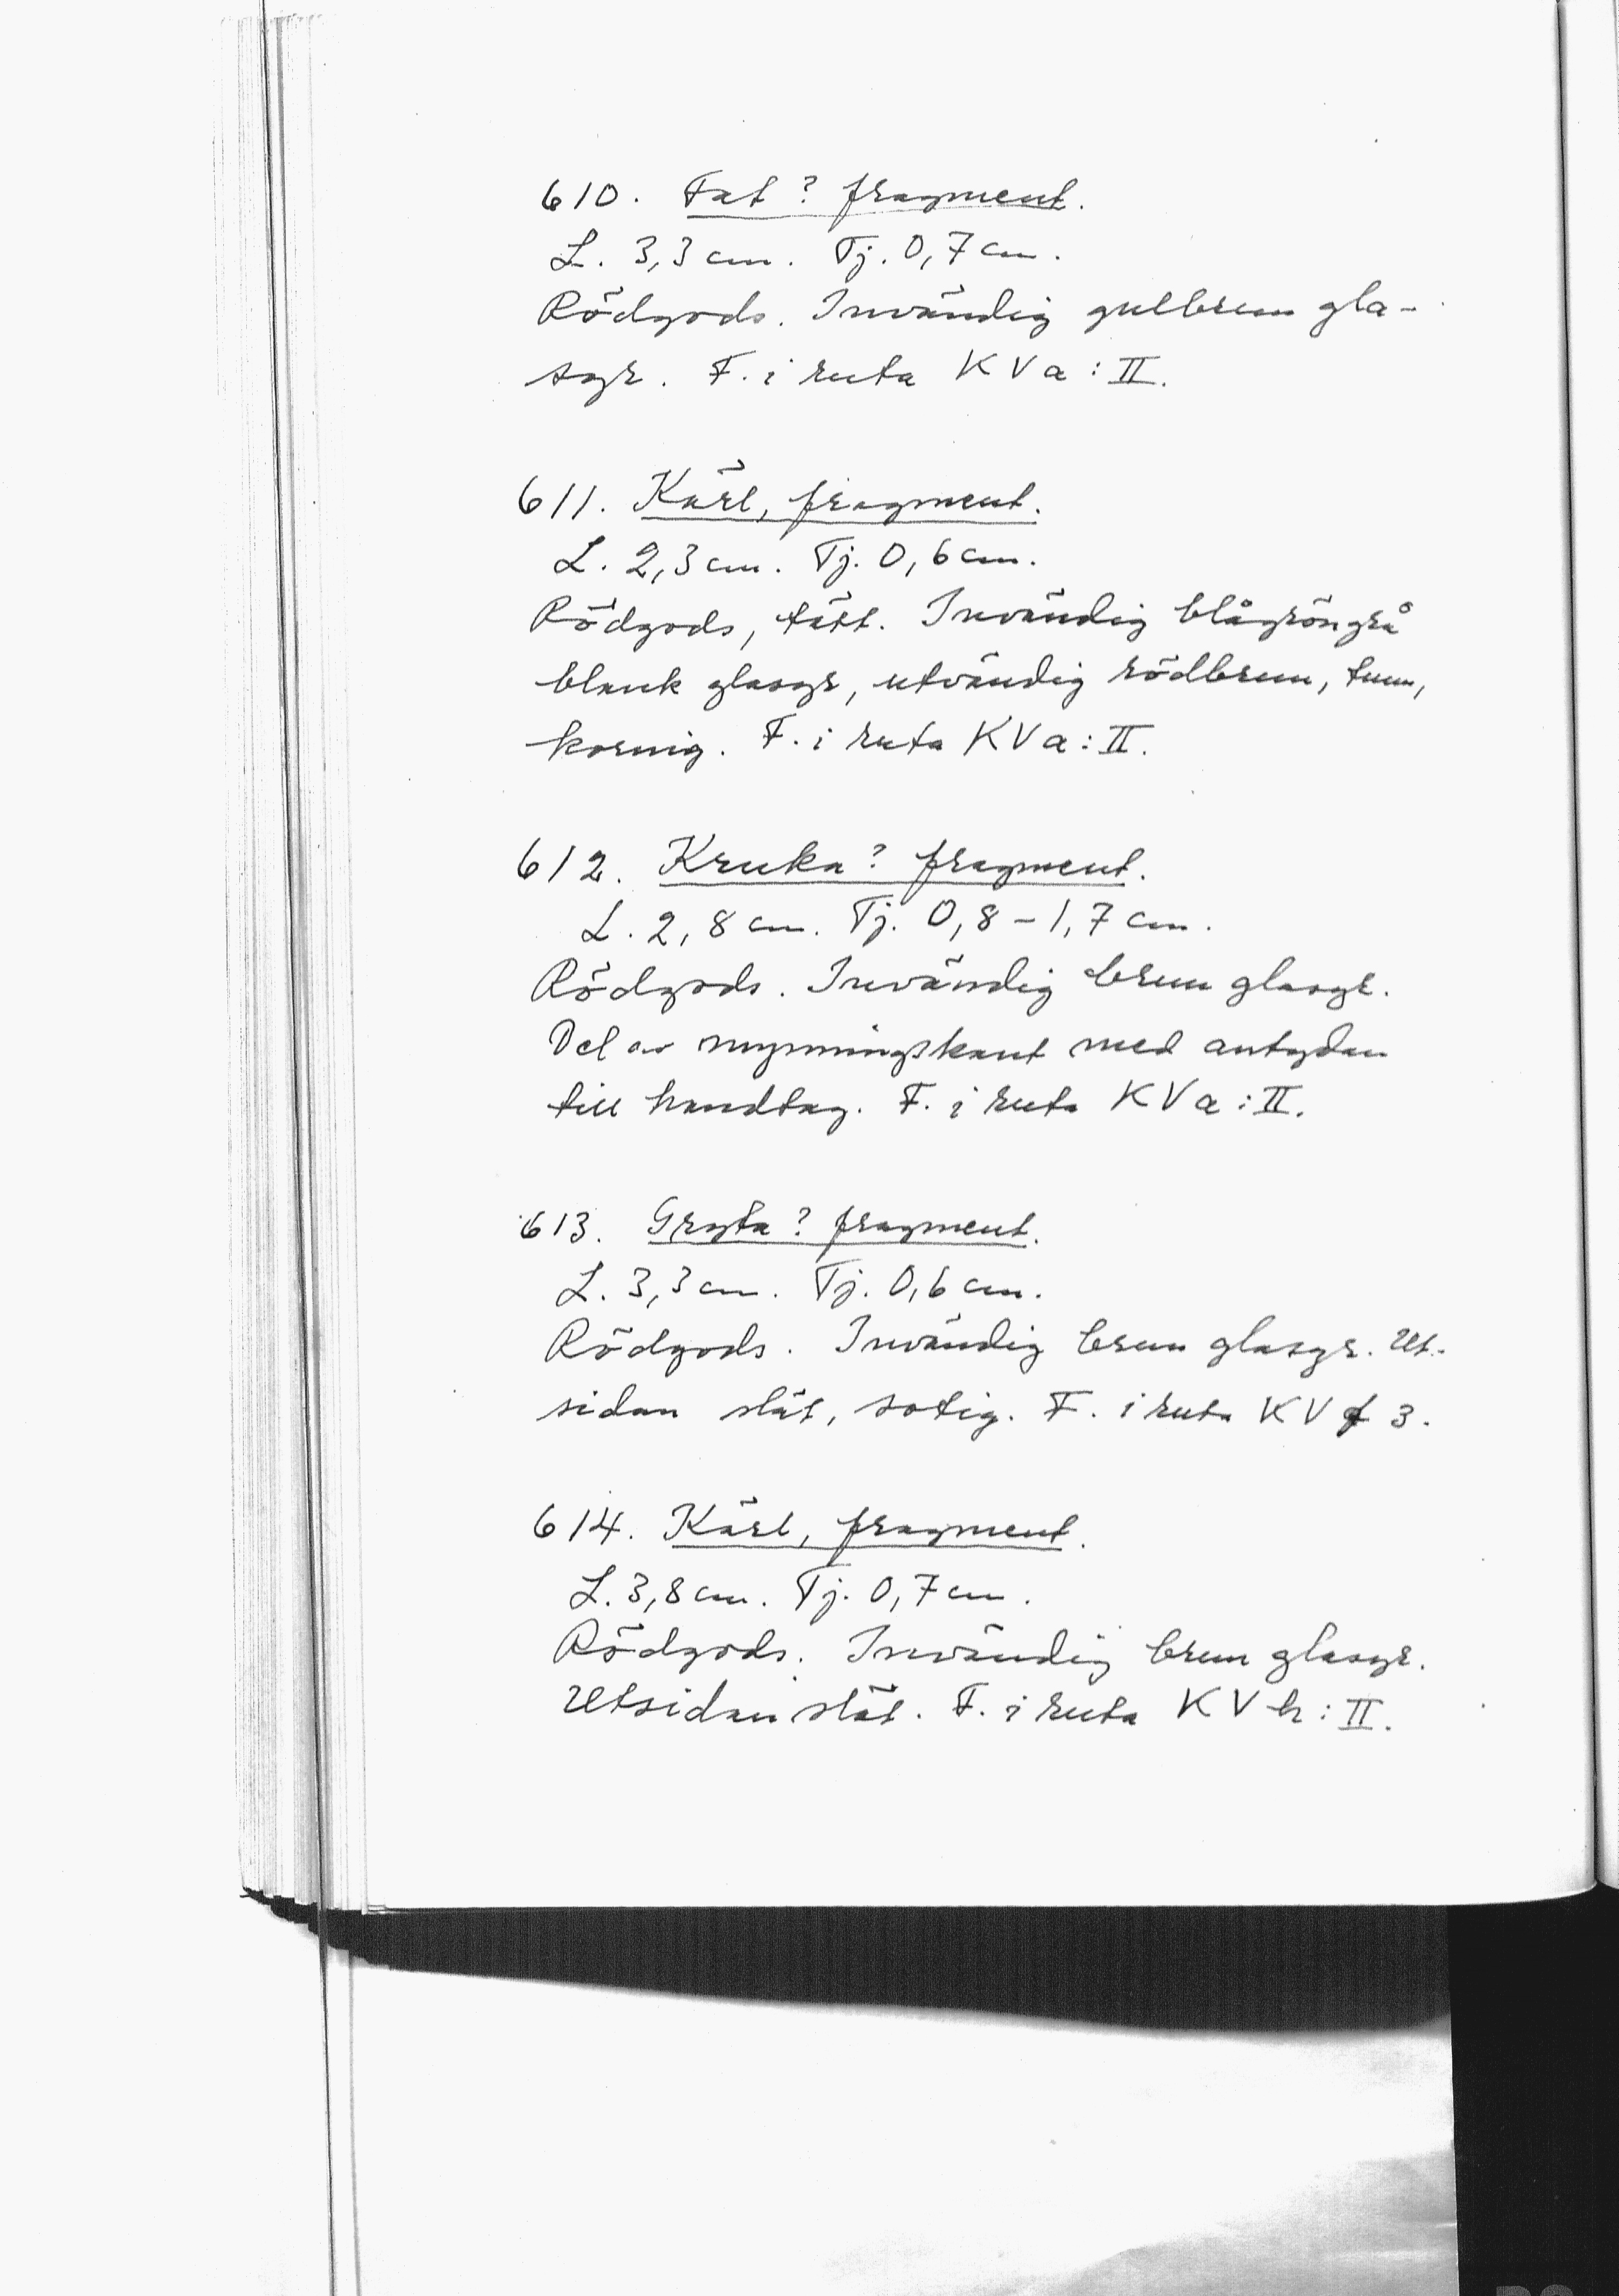 610. Fat? fragment.
L. 3,3 cm. Tj. 0,7 cm.
Rödgods. Invändig gulbrun gla-
syr. F. i ruta KVa:II.
611. Kärl, fragment.
L. 2,3 cm. Tj. 0,6 cm.
Rödgods, tätt. Invändig blågröngrå
blank glasyr, utvändig rödbrun, tunn,
kornig. F. i ruta KVa:II.
612. Kruka? fragment.
L. 2,8 cm. Tj. 0,8-1,7 cm.
Rödgods. Invändig brun glasyr.
Del av mynningskant med antydan
till handtag. F. i ruta KVa:II.
613. Gryta? fragment.
L. 3,3 cm. Tj. 0,6 cm.
Rödgods. Invändig brun glasyr. Ut-
sidan slät, sotig. F. i ruta KV 3.
614. Kärl, fragment.
L. 3,8 cm. Tj. 0,7 cm.
Rödgods. Invändig brun glasyr.
Utsidan slät. F. i ruta KVh:II.